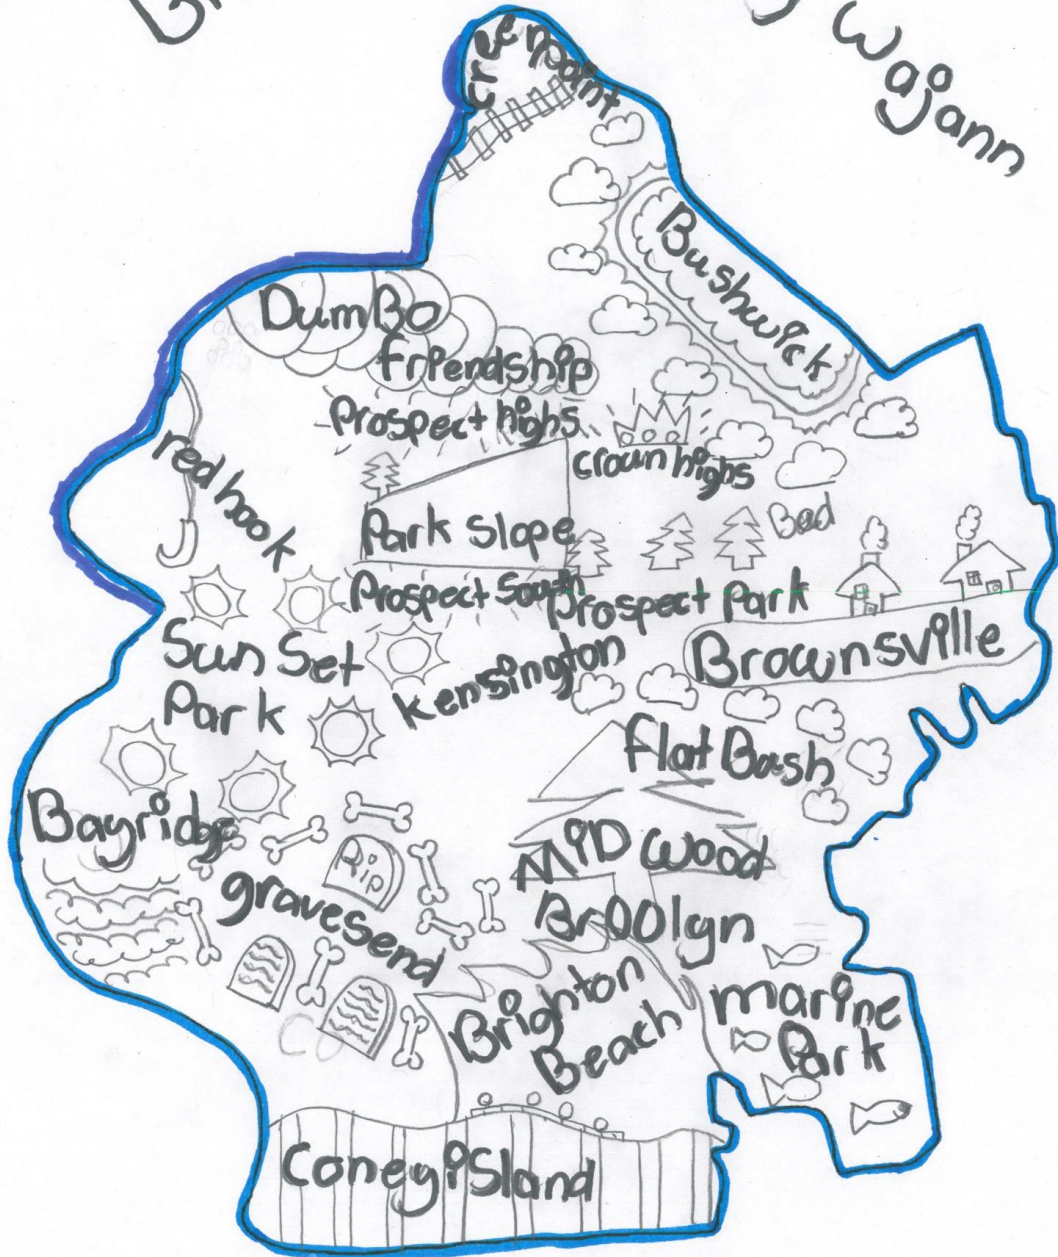 wajann
Greenpoint
Bushwick
DumBo
friendship
Prospect highs
crown highs
red hook
Park Slope
Bed
Prospect South
prospect Park
Sun Set
Park
kensington
Brownsville
flat Bush
Bayridge
Rip
MiD wood
gravesend
BrOOlyn
Brighton
Beach
marine
Park
ConeyiSland